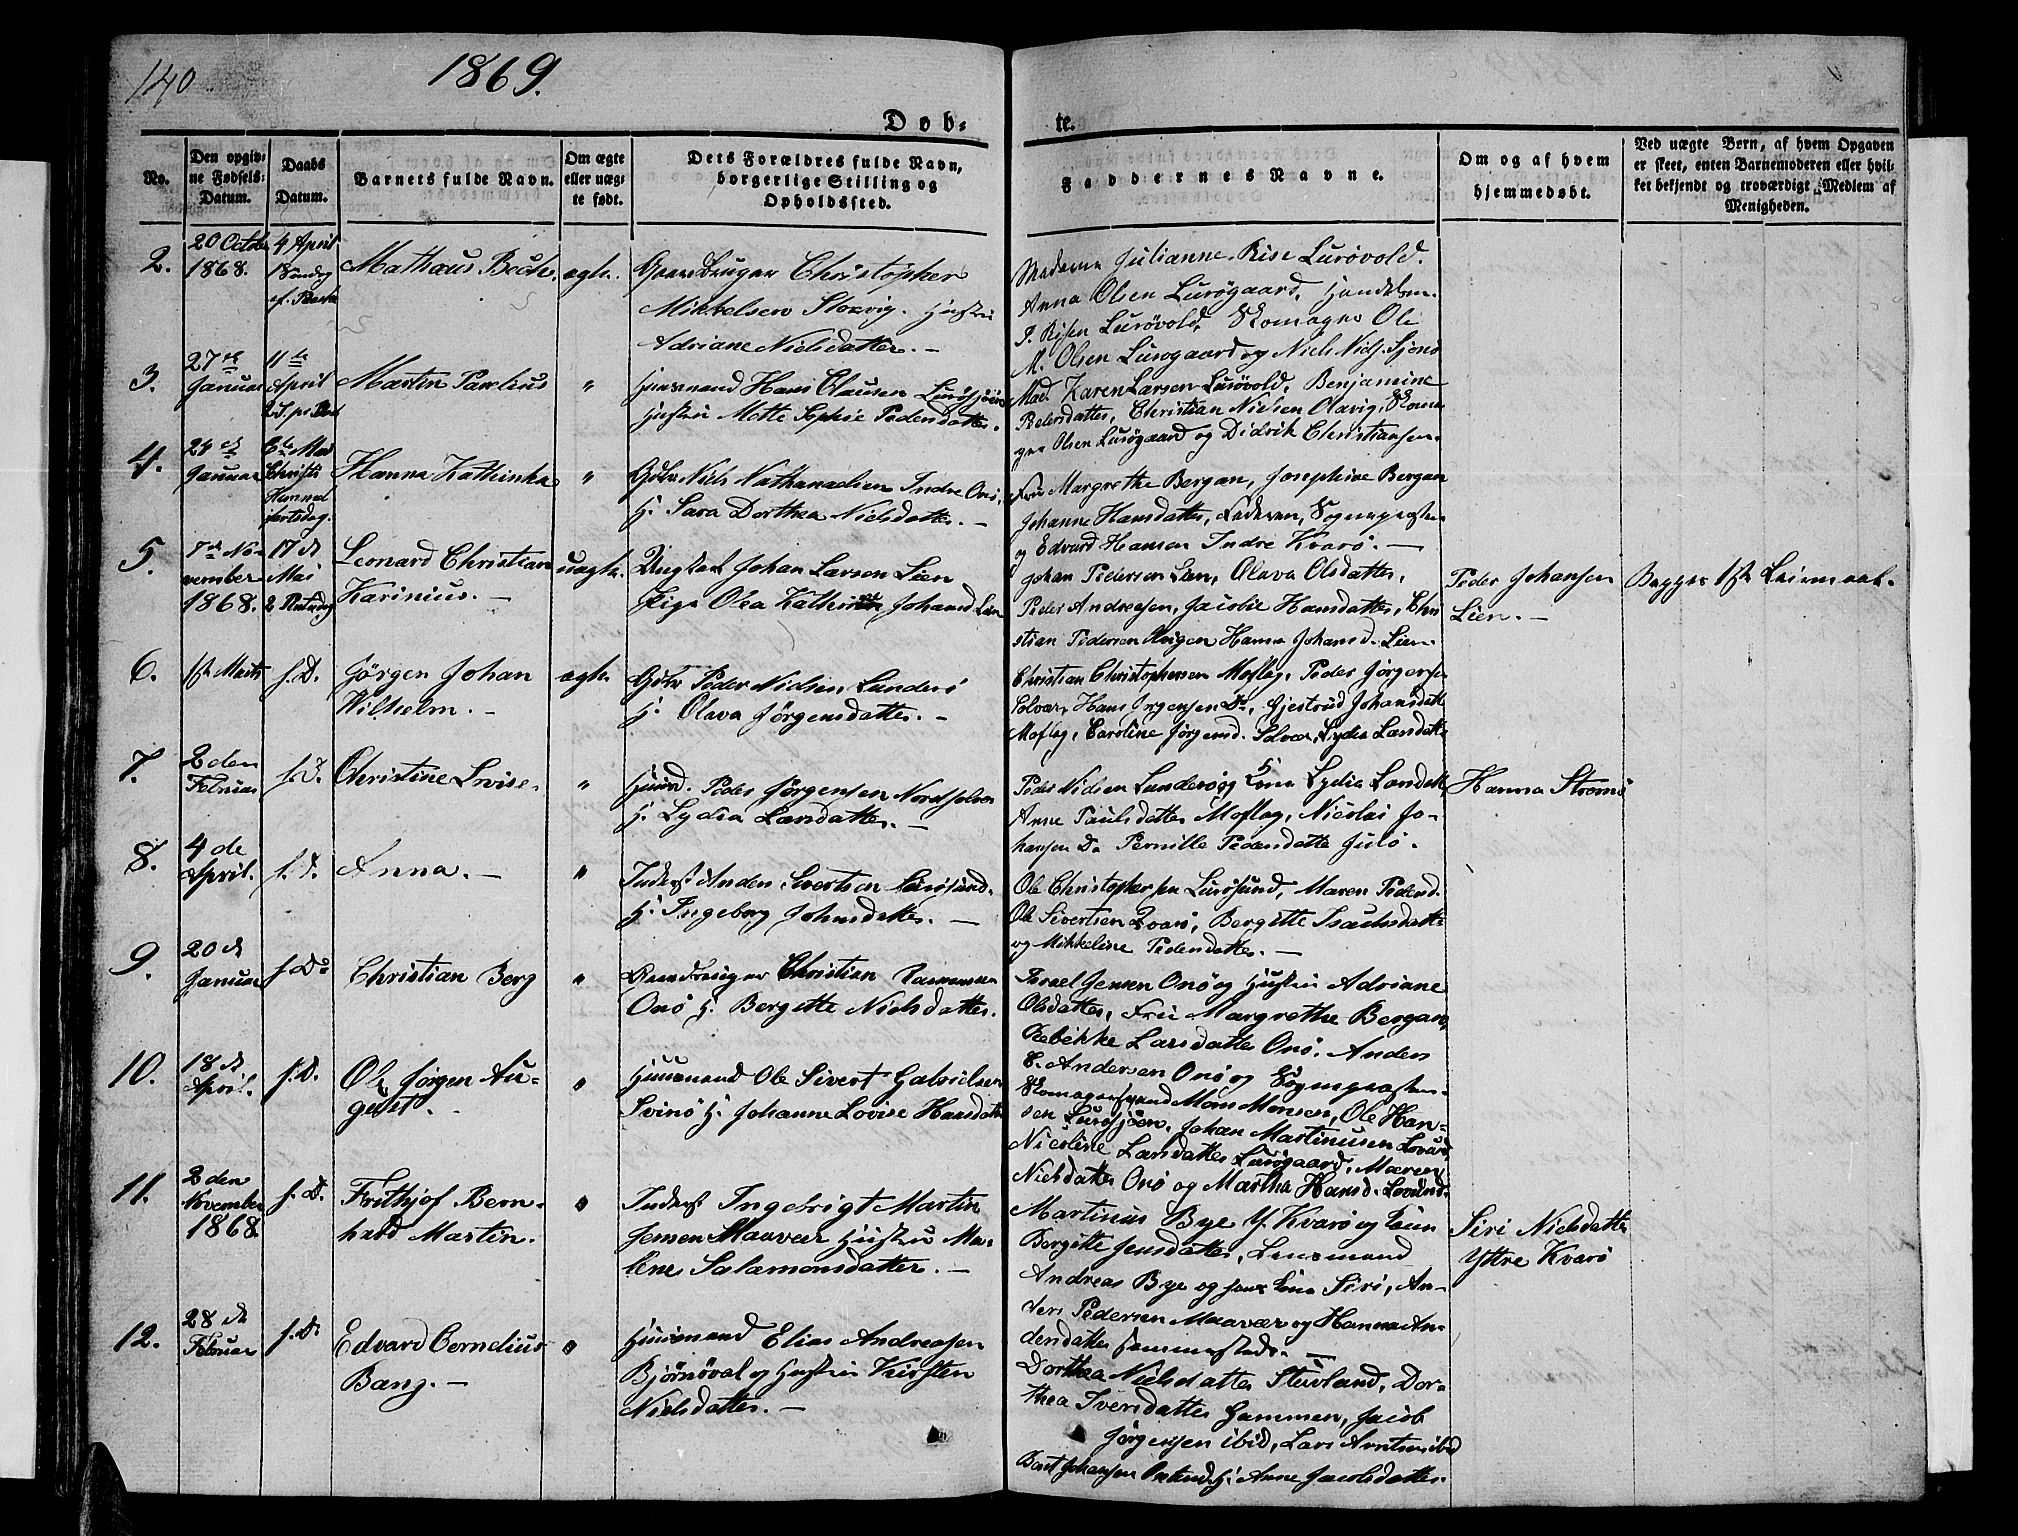 140
1869.
Døb-
te.
No.
Den opgiv-
ne Fødsels-
Datum.
Daabs
Datum.
Barnets fulde Navn.
Om ægte
eller uæg-
te født.
Dets Forældres fulde Navn,
borgerlige Stilling og
Opholdssted.
Faddernes Navne.
Om og af hvem
hjemmedøbt.
Ved uægte Børn, af hvem Opgaven
er skeet, enten Barnemoderen eller hvil-
ket bekjendt og troværdigt Medlem af
Menigheden.
2.
20 Octob
1868.
4 April
Mathæus Bech.
ægte.
Gaardbruger Christopher
Mikkelsen Storvig. Hustru
Adriane Nielsdatter. —
Madame Julianne Riise Lurøvold.
Anna Olsen Lurøgaard, Handelsm.
Lurøvold, Skomager Ole
M. Olsen Lurøgaard og Niels Niels.
3.
27de
Januar
11te
April
Martin Parelius
"
Huusmand Hans Clausen Lurøsjøen
Hustru Mette Sophie Pedersdatter.
Mad. Karen Larsen Lurøvold, Benjamine
Pedersdatter, Christian Nielsen Olavig, Skoma
ger Olsen Lurøgaard og Didrik Christiansen.
4.
24de
Januar
6te Mai
Christi
Himmel
fartsdag.
Hanna Kathinka
"
Gdbr Niels Nathanaelsen Indre Onø,
H. Sara Dorthea Nielsdatter. —
Fru Margrethe Bergan, Josephine Bergan
Johanne Hansdatter, Faderen, Sognepræsten
og Edvard Hansen Indre Kvarø. —
5.
7de No-
vember
1868.
17de
Mai
2 Pintsedag
Leonard Christian
Karinius. —
uægte.
Ungkarl Johan Larsen Lien
Pige Olea Kathrine Johansd Lien
Johan Pedersen Lien, Olava Olsdatter,
Peder Andreasen, Jacobie Hansdatter, Chri
stian Pedersen Hanna Johansd. Lien.
Peder Johansen
Lien. —
Begges 1ste Leiermaal.
6.
1ste Marts
s. D.
Jørgen Johan
Wilhelm. —
ægte.
Gdbr Peder Nielsen Sunderø
H. Olava Jørgensdatter. —
Christian Christophersen Moflag, Peder Jørgensen
Solvær, Hans Jørgensen Do, Gjertrud Johansdatt
Moflag, Caroline Jørgensd. Solvær, Lydia Larsdatt
7.
2den
Februar
s. D.
Christine Lovise.
"
Huusmd. Peder Jørgensen Nordsolvær
H. Lydia Larsdatter. —
Peder Nielsen Sunderø og Lydia Larsdatt
Anne Paulsdatter Moflag, Nicolai Jo-
hansen Do Pernille Pedersdatte
Hanna Strømø
8.
4de
April.
s. D.
Anna. —
"
Inderst Anders Sivertsen Lurøsund.
H. Ingeborg Johnsdatter. —
Ole Christophersen Lurøsund, Maren Pedersd.
Ole Sivertsen Kvarø, Bergitte Isachsdatt
og Mikkeline Pedersdatter. —
9.
20de
Januar
s. D.
Christian Berg
"
Gaardbruger Christian
Onø H. Bergitte Nielsdatter.
Israel Jensen Onø og Hustru Adriane
Olsdatter, Frue Margrethe Bergan,
Rebekke Larsdatter Onø, Anders
E. Andersen Onø og Sognepræsten
10.
18de
April.
s. D.
Ole Jørgen Au-
gust.
"
Huusmand Ole Sivert Gabrielsen
Svinø H. Johanne Lovise Hansdatt
Skomagersvend Mons Monsen, Ole Han-
sen Lurøsjøen, Johan Martinusen Lovund,
Nicoline Larsdatter Lurøgaard, Maren
Nielsdatter Onø og Martha Hansd. Lovund.
11.
2den
November
1868.
s. D.
Frithjof Bern-
hard Martin.
"
Inderst Ingebrigt Martin
Jensen Maavær Hustru Ma-
lene Salamonsdatter. —
Martinus Bye Y. Kvarø og
Bergitte Jensdatter, Lensmand
Andreas Bye og Siri, An-
ders Pedersen Maavær og Hanna An-
dersdatter sammesteds. —
Siri Nielsdatte
Yttre Kvarø
12.
28de
Februar
s. D.
Edvard Cornelius
Bang. —
"
Huusmand Elias Andreasen
Bjørnøval og Hustru Kirsten
Nielsdatter. —
Dorthea Nielsdatter Stuvland, Dor-
thea Iversdatter Gammen, Jacob
Jørgensen ibid, Lars Arntsen ibid
Johansen H. Anne Jacobsdatter.